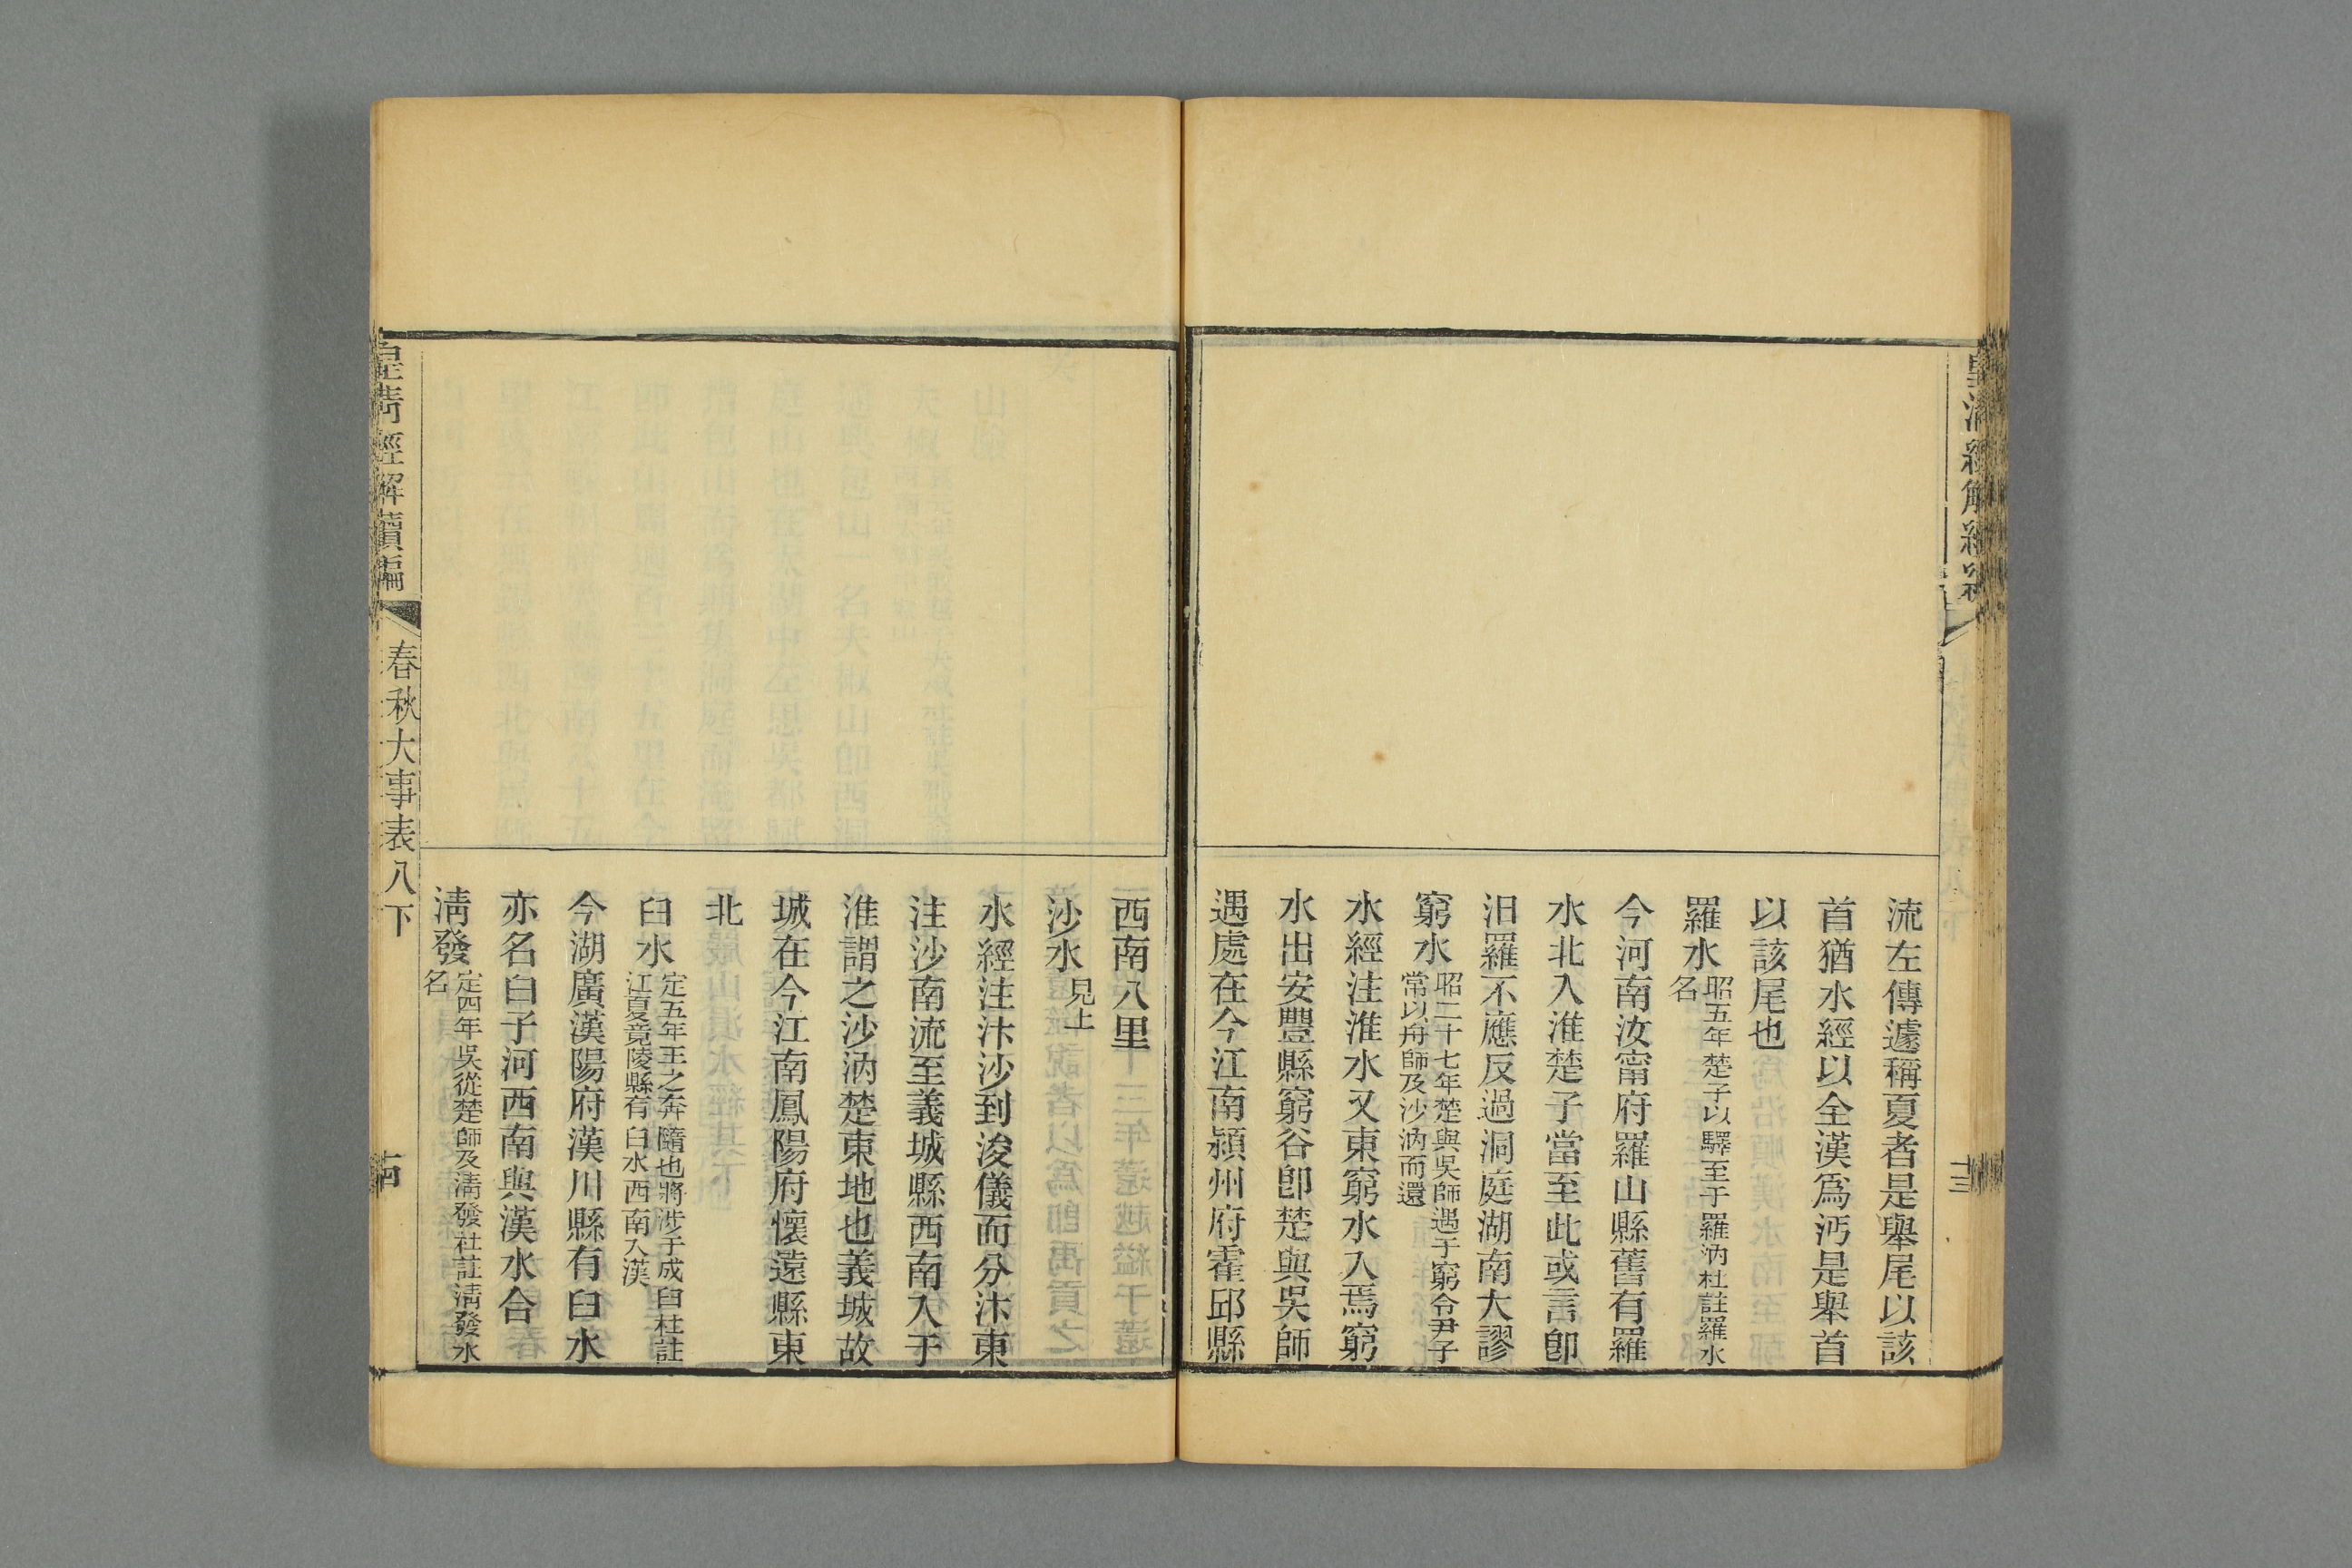 流左傳遽稱夏者是舉尾以該
首猶水經以全漢爲沔是舉首
以該尾也
羅水昭五年楚子以驛至于羅汭杜註羅水名
今河南汝甯府羅山縣舊有羅
水北入淮楚子當至此或言卽
汨羅不應反過洞庭湖南大謬
窮水昭二十七年楚與吳師遇于窮令尹子常以舟師及沙汭而還
水經注淮水又東窮水入焉窮
水出安豐縣窮谷卽楚與吳師
遇處在今江南潁州府霍邱縣
十三
西南八里
沙水見上
水經注汴沙到浚儀而分汴東
注沙南流至義城縣西南入于
淮謂之沙汭楚東地也義城故
城在今江南鳳陽府懷遠縣東
北
臼水定五年王之奔隨也將涉于成臼杜註江夏竟陵縣有臼水西南入漢
今湖廣漢陽府漢川縣有臼水
亦名臼子河西南與漢水合
淸發定四年吳從楚師及淸發杜註淸發水名
皇淸經解續編
春秋大事表八下
十四